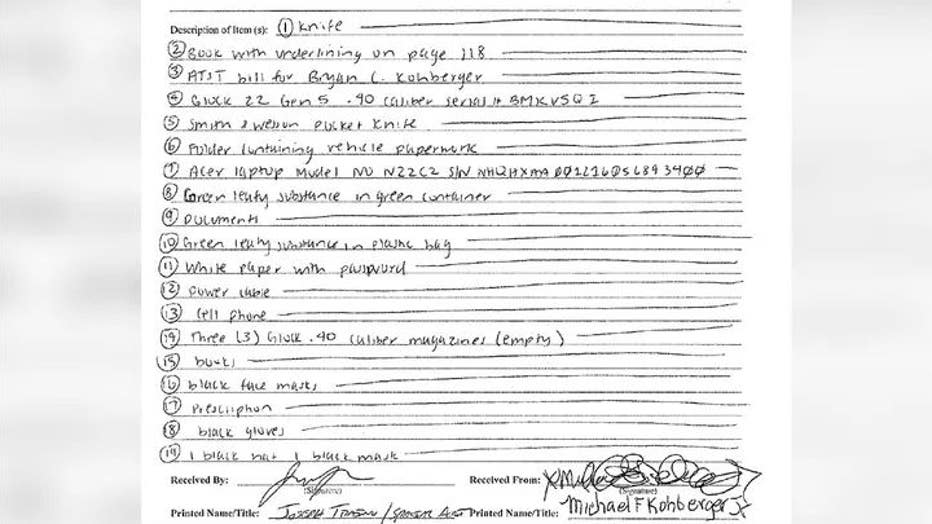 Description of Item(s): ① Knife
② Book with underlining on page 118
③ AT&T bill for Bryan C. Kohberger
④ Glock 22 Gen 5 .40 caliber serial #
⑤ Smith & Wesson pocket knife
⑥ Folder containing vehicle paperwork
⑦ Acer laptop Model NO N22C2 S/N
⑧ Green leafy substance in green container
⑨ Documents
⑩ Green leafy substance in plastic bag
⑪ White paper with password
⑫ power cable
⑬ cell phone
⑭ Three (3) Glock .40 caliber magazines (empty)
⑮ books
⑯ black face masks
⑰ Prescription
⑱ black gloves
⑲ 1 black hat 1 black mask
Received By: Received From:
(Signature) (Signature)
Printed Name/Title: Joseph Printed Name/Title: Michael F Kohberger Jr